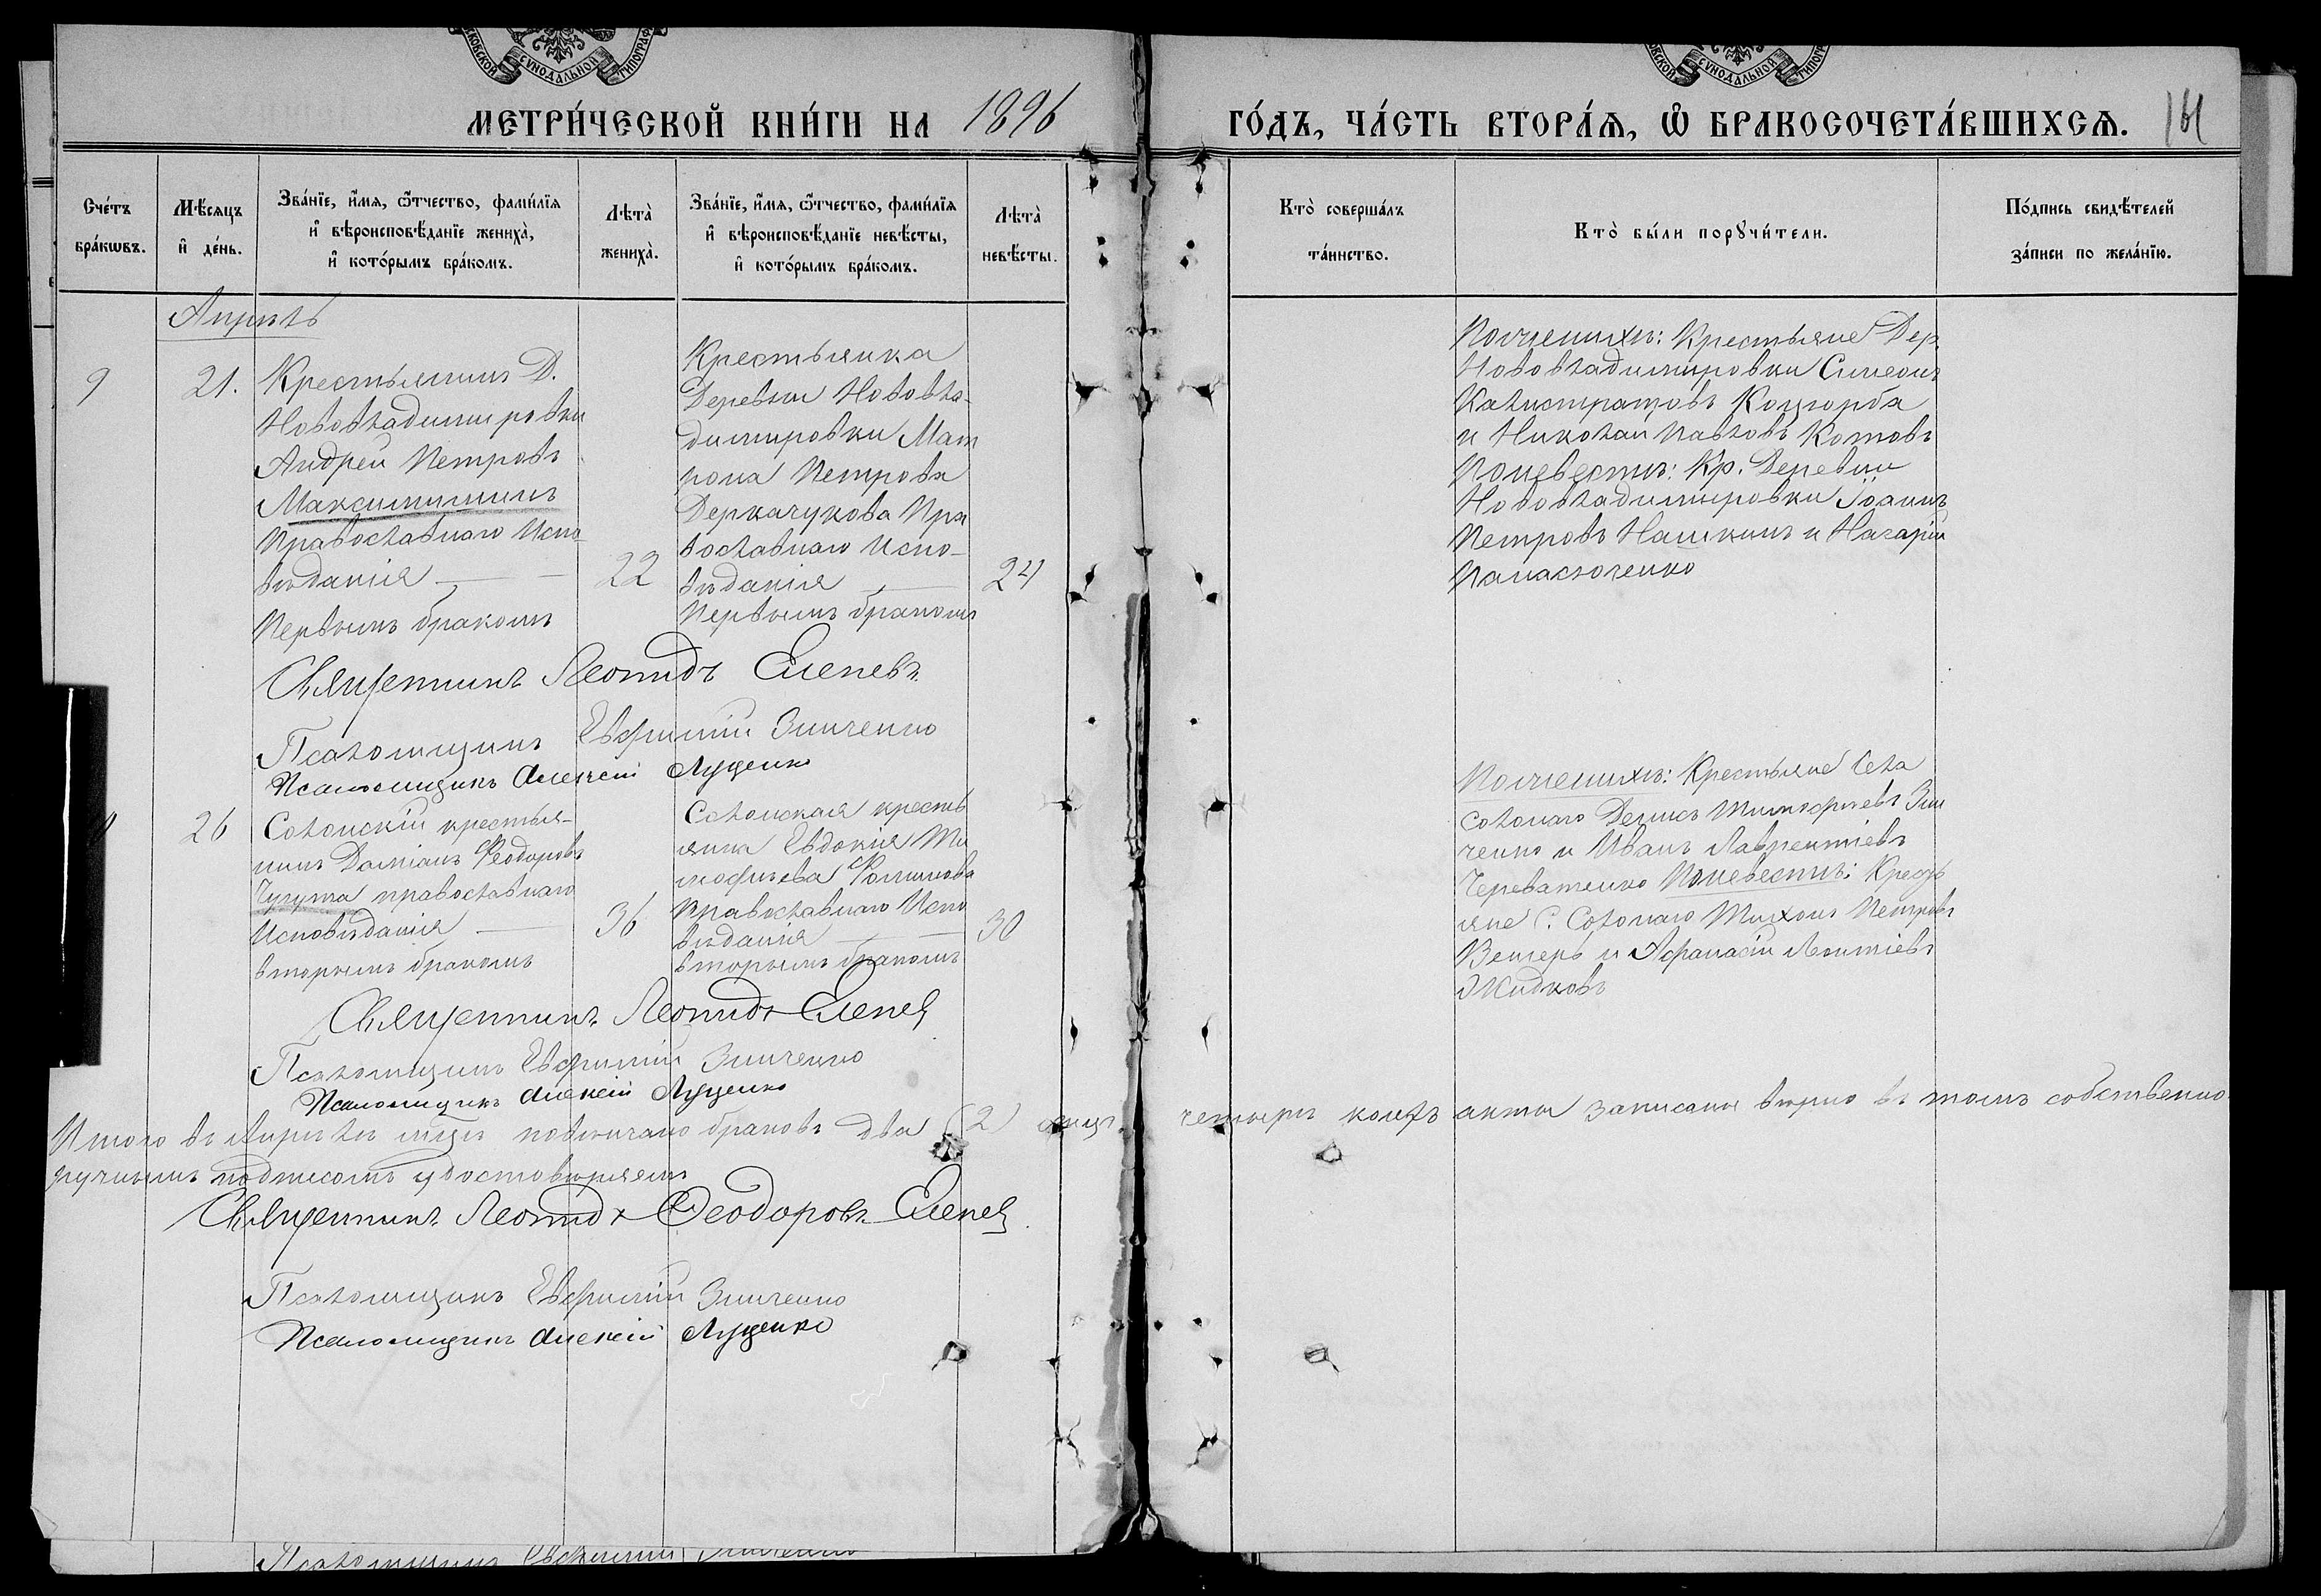 МЕТРИ́ЧЕСКОЙ КНИ́ГИ НА 1896 ГО́ДЪ, ЧА́СТЬ ВТОРА́Ѧ, Ѡ҆ БРАКОСОЧЕТА́ВШИХСѦ.
Сче́тъ бра́кѡвъ.
Мѣ́сяцъ и҆ де́нь.
Зва́нїе, и҆́мя, ѻ҆́тчество, фами́лїя
и҆ вѣроисповѣ́данїе жениха̀,
и҆ кото́рымъ бра́комъ.
Лѣта̀ жениха̀.
Зва́нїе, и҆́мя, ѻ҆́тчество, фами́лїя
и҆ вѣроисповѣ́данїе невѣ́сты,
и҆ кото́рымъ бра́комъ.
Лѣта̀ невѣ́сты.
Кто̀ соверша́лъ
та́инство.
Кто̀ бы́ли порꙋчи́тели.
По́дпись свидѣ́телей
за́писи по жела́нїю.
Апрѣль
9
21.
Крестьянинъ Д.
Нововладимировки
Андрей Петровъ
Максимишинъ
Православнаго Испо-
вѣданія
Первымъ бракомъ
22
Крестьянка
Деревни Нововла-
димировки Мат
рона Петрова
Деркачукова Пра
вославнаго Испо-
вѣданія
Первымъ бракомъ
24
По женихѣ: Крестьяне Дер.
Нововладимировки Симеонъ
Калистратовъ Коцюрба
и Николай Павловъ Котовъ
По невестѣ: Кр. Деревни
Нововладимировки Іоаннъ
Петровъ Нашкинъ и Назарій
Панасюченко
Священникъ Леонидъ Еленевъ
Псаломщикъ Евфимій Зинченко
Псаломщикъ Алексій Луценко
26
Солонскій крестья-
нинъ Даміанъ Феодоровъ
Чугута православнаго
Исповѣданія
вторымъ бракомъ
36
Солонская кресть
янка Евдокія Ти
мофѣева Фоминова
Православнаго Испо
вѣданія
вторымъ бракомъ
30
По женихѣ: Крестьяне Села
Солонаго Денисъ Тимофѣевъ Зин
ченко и Иванъ Лаврентіевъ
Череватенко По невестѣ: Кресть
яне С. Солонаго Тихонъ Петровъ
Венгеръ и Афанасій Леонтіевъ
Жидковъ
Священникъ Леонидъ Еленев
Псаломщикъ Евфимій Зинченко
Псаломщикъ Алексій Луценко
Итого въ Апрѣлѣ мцѣ повѣнчано браковъ два (2) лицъ четыре коихъ акты записаны вѣрно въ томъ собственно
ручнымъ подписомъ удостовѣряемъ
Священникъ Леонидъ Феодоровъ Еленев
Псаломщикъ Евфимій Зинченко
Псаломщикъ Алексій Луценко
Псаломщикъ Евфимій Зинченко